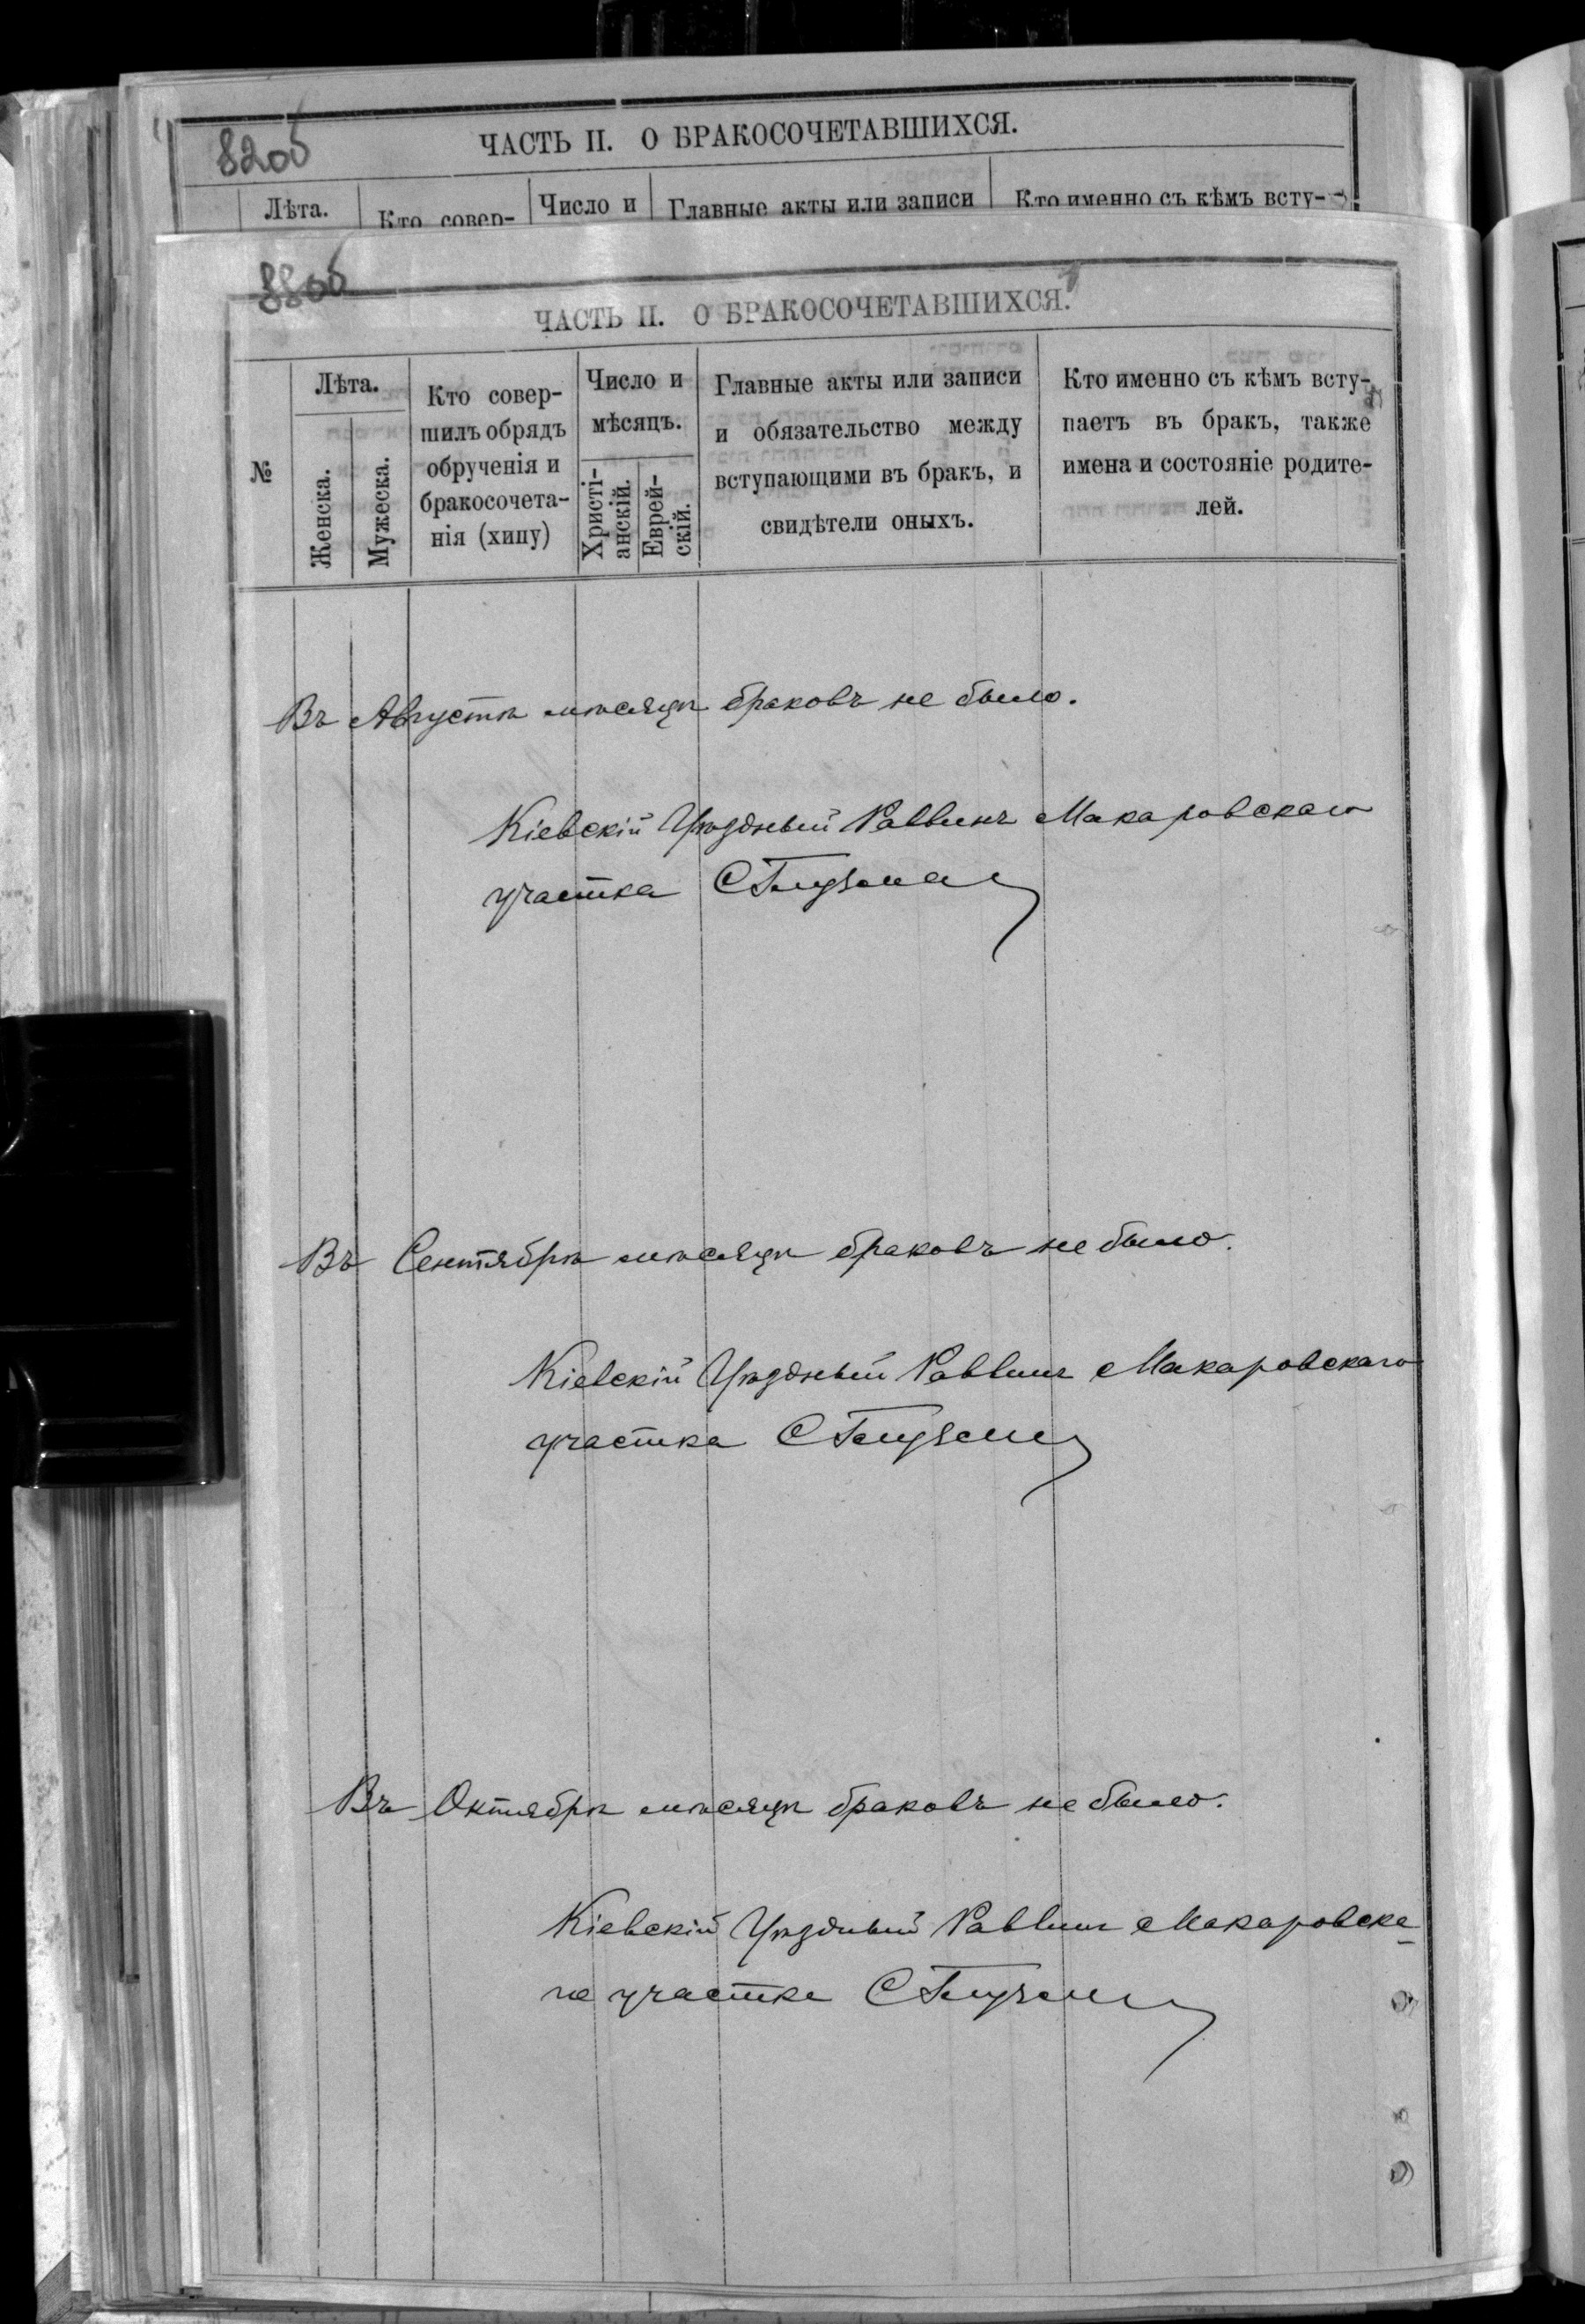 82об
ЧАСТЬ II. О БРАКОСОЧЕТАВШИХСЯ.
Лѣта.
Кто совер-
Число и
Главные акты или записи
Кто именно съ кѣмъ всту-
88об
ЧАСТЬ II. О БРАКОСОЧЕТАВШИХСЯ.
№
Лѣта.
Женска.
Мужеска.
Кто совер-
шилъ обрядъ
обрученія и
бракосочета-
нія (хипу)
Число и
мѣсяцъ.
Христі-
анскій.
Еврей-
скій.
Главные акты или записи
и обязательство между
вступающими въ бракъ, и
свидѣтели оныхъ.
Кто именно съ кѣмъ всту-
паетъ въ бракъ, также
имена и состояніе родите-
лей.
Въ Августѣ мѣсяцѣ браковъ не было.
Кіевскій Уѣздный Раввинъ Макаровскаго
участка
Въ Сентябрѣ мѣсяцѣ браковъ не было.
Кіевскій Уѣздный Раввинъ Макаровскаго
участка
Въ Октябрѣ мѣсяцѣ браковъ не было.
Кіевскій Уѣздный Раввинъ Макаровска-
го участка